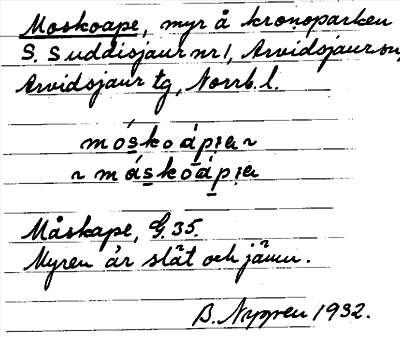 Moskoape, myr å kronoparken
S. Suddisjaur nr 1, Arvidsjaur sn,
Arvidsjaur tg, Norrb. l.
móskoápier ~
~ máskoápier
Måskape, G. 35.
Myren är slät och jämn.
B. Nygren 1932.